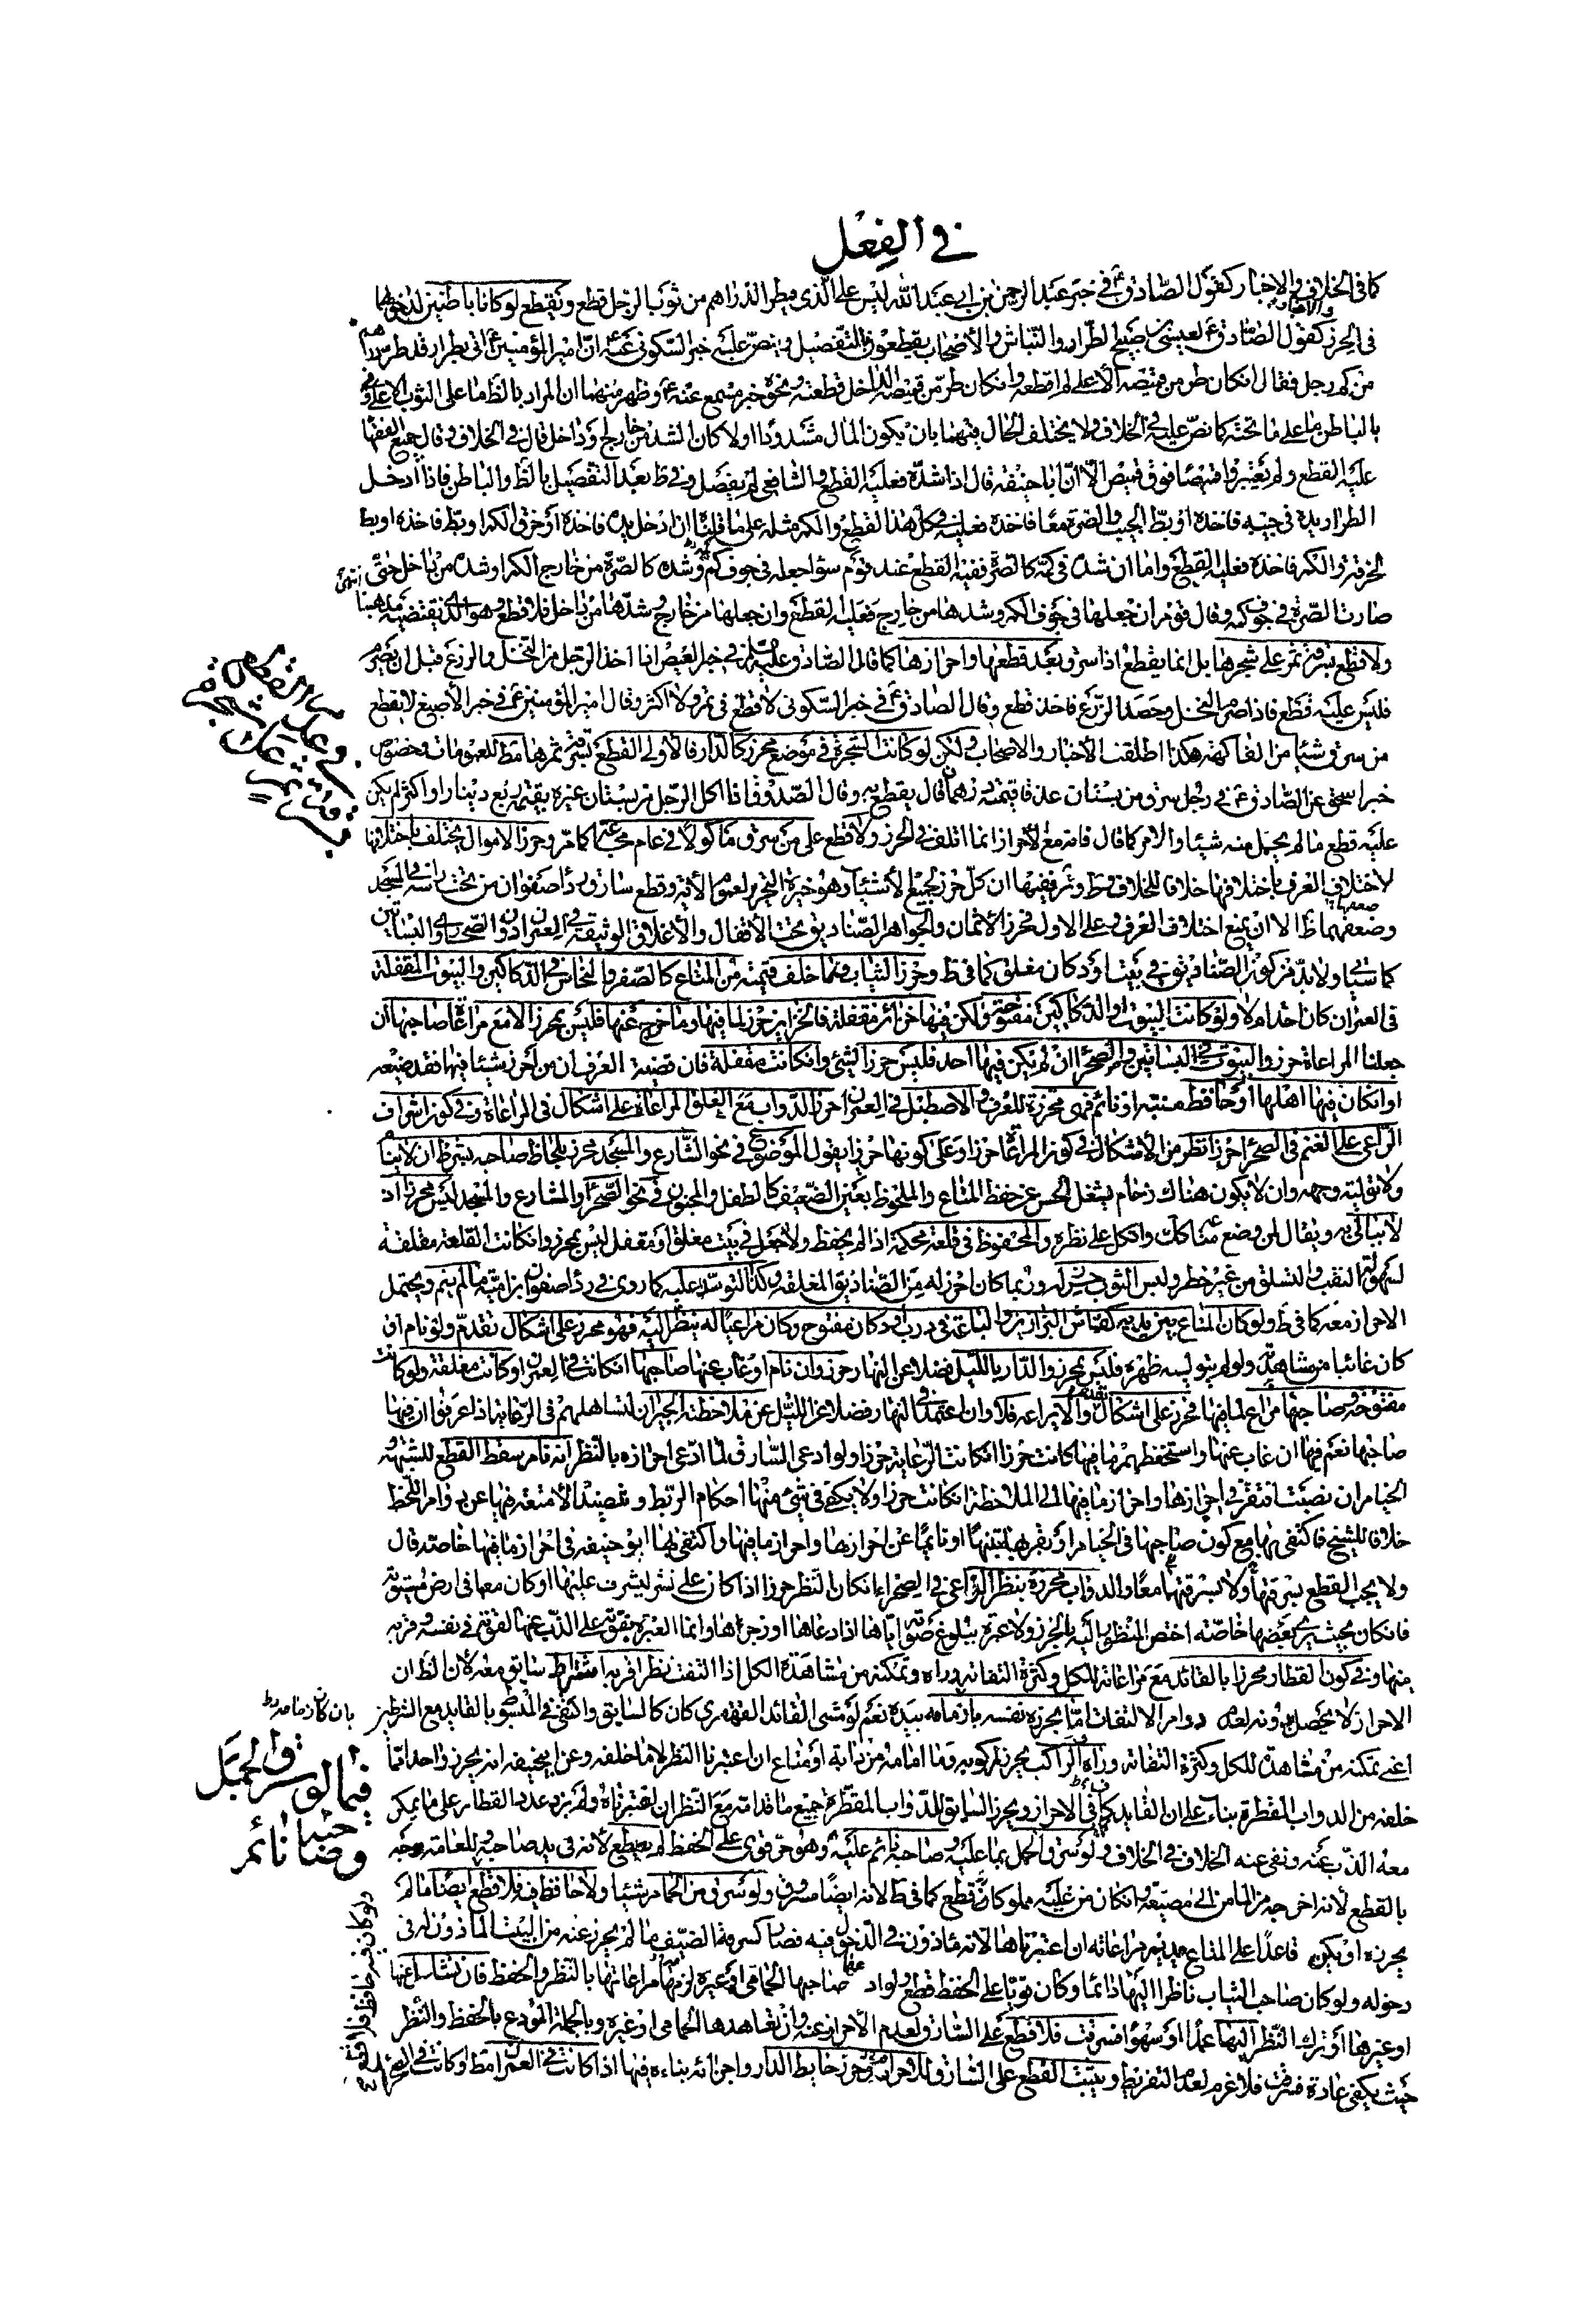 في الفعل
كما في الخلاف والاخبار كقول الصادق ع في خبر عبد الرحمن بن ابي عبد الله ليس على الذي يطر الدراهم من ثوب الرجل قطع ويقطع لو كانا باطنين لدخولهما
في الحرز كقول الصادق ع لعيسى بن صبيح الطرار والنباش والاصحاب يقطعون بالتفصيل وينص عليه خبر السكوني عنه ان امير المؤمنين ع اتى بطرار قد طر دراهم
من كم رجل فقال ان كان طر من قميصه الاعلى لم اقطعه وان كان طر من قميصه الداخل قطعته ونحوه خبر مسمع عنه ع وظهر منهما ان المراد بالظ ما على الثوب الاعلى و
بالباطن ما على ما تحته كما نص عليه في الخلاف ولا يختلف الحال فيهما بان يكون المال مشدودا او لا كان الشد من خارج او داخل قال في الخلاف وقال جميع الفقهاء
عليه القطع ولم يعتبروا قميصا فوق قميص الا ان ابا حنيفة قال اذا شده فعليه القطع والشافعي لم يفصل وفي ط بعد التفصيل بالظ والباطن فاذا ادخل
الطرار يده في جيبه فاخذه او بط الجيب والصرة معا فاخذه فعليه في كل هذا القطع والكم مثله على ما قلناه ان ادخل يده فاخذه او خرق الكم او بط فاخذه او بط
الخرقة والكم فاخذه فعليه القطع واما ان شده في كمه كالصرة ففيه القطع عند قوم سواء جعله في جوف كمه وشده كالصرة من خارج الكم او شده من داخل حتى
صارت الصرة في جوف كمه وقال قوم ان جعلها في جوف الكم وشدها من خارج فعليه القطع وان جعلها من خارج وشدها من داخل فلا قطع وهو الذي يقتضيه مذهبنا انتهى
ولا قطع بسرقة ثمر على شجرها بل انما يقطع اذا سرق بعد قطعها واحرازها كما قال الصادق عليه السلام في خبر الفيض اذا اخذ الرجل من النخل والزرع قبل ان يصرم
فليس عليه قطع فاذا صرم النخل وحصد الزرع فاخذ قطع وقال الصادق ع في خبر السكوني لا قطع في ثمر ولا كثر وقال امير المؤمنين ع في خبر الاصبغ لا يقطع
من سرق شيئا من الفاكهة هكذا اطلقت الاخبار والاصحاب ولكن لو كانت الشجرة في موضع محرز كالدار فالاولى القطع بسرقة ثمرها مط للعمومات وخصوص
خبر اسحق عن الصادق ع في رجل سرق من بستان عذقا قيمته درهمان قال يقطع به وقال الصدوق اذا اكل الرجل من بستان غيره بقيمة ربع دينار او اكثر لم يكن
عليه قطع ما لم يحمل منه شيئا والامر كما قال فانه مع الاحراز انما اتلف في الحرز ولا قطع على من سرق ماكولا في عام مجاعة كما مر وحرز الاموال يختلف باختلافها
لاختلاف العرف باختلافها خلافا للخلاف وط وئر ففيها ان كل حرز لجميع الاشياء وهو خيرة التحرير لعموم الآية وقطع سارق رداء صفوان من تحت راسه في المسجد
وضعفهما ظ الا ان يمنع اختلاف العرف وعلى الاول فحرز الاثمان والجواهر الصناديق تحت الاقفال والاغلاق الوثيقة في العمران دون الصحاري والبساتين
كما سياتي ولا بد من كون الصناديق في بيت او دكان مغلق كما في ط وحرز الثياب وما خف قيمته من المتاع كالصفر والنحاس في الدكاكين والبيوت المقفلة
في العمران كان احدهما او لا ولو كانت البيوت او الدكاكين مفتوحة ولكن فيها خزائن مقفلة فالخزاين حرز لما فيها وما خرج عنها فليس بمحرز الا مع مراعاة صاحبها ان
جعلنا المراعاة حرزا والبيوت في البساتين والصحراء ان لم يكن فيها احد فليس حرزا لشيء وان كانت مقفلة فان قضية العرف ان من احرز شيئا فيها فقد ضيعه
او ان كان فيها اهلها او حافظ منتبه او نائم فهي محرزة للعرف والاصطبل في العمران حرز الدواب مع الغلق او المراعاة على اشكال في المراعاة وفي كون اشراف
الراعي على الغنم في الصحراء حرزا نظر من الاشكال في كون المراعاة حرزا وعلى كونها حرزا يقول الموضوع في نحو الشارع والمسجد محرز بلحاظ صاحبه بشرط ان لا ينام
ولا يوليه وجهه وان لا يكون هناك زحام يشغل الحس عن حفظ المتاع والملحوظ بعين الضعيف كالطفل والمجنون في نحو الصحراء والشارع والمسجد ليس محرزا اذ
لا يبالى به ويقال لمن وضع متاعك واتكل على نظره والمحفوظ في قلعة محكمة اذا لم يحفظ ولا جعل في بيت مغلق او مقفل ليس بمحرز وان كانت القلعة مغلقة
لسهولة النقب والتسلق من غير خطر ولبس الثوب حرز له وربما كان احرز له من الصناديق المغلقة وكذا التوسد عليه كما روي في رداء صفوان بن امية ما لم ينم ويحتمل
الاحراز معه كما في ط ولو كان المتاع بين يديه كقماش البزازين والباعة في درب او دكان مفتوح وكان مراعيا له ينظر اليه فهو محرز على اشكال تقدم ولو نام او
كان غائبا من مشاهدته ولو لم يتوليه ظهره فليس بمحرز والدار بالليل فضلا عن النهار حرز وان نام او غاب عنها صاحبها ان كانت في العمران او كانت مغلقة ولو كانت
مفتوحة وصاحبها مراع لما فيها فمحرز على اشكال تقدم والا يراعيه فلا وان اعتمد في النهار فضلا عن الليل على ملاحظة الجيران لتساهلهم في الرعاية اذا عرفوا ان فيها
صاحبها نعم فيها ان غاب عنها واستحفظهم ما فيها كانت حرزا ان كانت الرعاية حرزا ولو ادعى السارق لما ادعى احرازه بالنظر انه نام سقط القطع للشبهة و
الخيام ان نصبت افتقر في احرازها واحراز ما فيها الى الملاحظة ان كانت حرزا ولا يكفي في شيء منها احكام الربط وتنضيد الامتعة فيها عن دوام اللحظ
خلافا للشيخ فاكتفى بهما مع كون صاحبها في الخيام او بقربها منتبها او نائما عن احرازها واحراز ما فيها واكتفى بهما ابو حنيفة في احراز ما فيها خاصة قال
ولا يجب القطع بسرقتها ولا بسرقتهما معا والدواب محرزة بنظر الراعي في الصحراء ان كان النظر حرزا اذا كان على نشز ليشرف عليها او كان معها في ارض مستوية
فان كان بحيث يرى بعضها خاصة اختص المنظور اليه بالحرز ولا عبرة ببلوغ صوته اياها اذا دعاها او زجرها وانما العبرة بقوته على الذب عنها لقوة في نفسه او قربه
منها وفي كون القطار محرزا بالقائد مع مراعاته للكل وكثرة التفاته وراه وتمكنه من مشاهدة الكل اذا التفت نظر اقربه اشتراط سايق معه لان الظ ان
الاحراز لا يحصل بدونه لعدم دوام الالتفات اما يحرزه نفسه ما زمامه بيده نعم لو مشى القائد القهقرى كان كالسايق واكتفى في المبسوط بالقايد مع الشرطين
اعني تمكنه من مشاهدة الكل وكثرة التفاته وراه والراكب يحرز مركوبه وما امامه من دابة او متاع ان اعتبرنا النظر لا ما خلفه وعن ابي حنيفة انه يحرز واحدا مما
خلفه من الدواب المقطرة بناء على ان القايد كاف في الاحراز ويحرز السايق للدواب المقطرة جميع ما قدامه مع النظر ان اعتبرناه ولم يزد عدد القطار على ما يمكن
معه الذب عنه ونفى عنه الخلاف في الخلاف ولو سرق الجمل بما عليه وصاحبه نائم عليه وهو حر قوي على الحفظ لم يقطع لانه في يد صاحبه وللعامة وجه
بالقطع لانه اخرجه من المامن الى مضيعة وان كان من عليه مملوكا قطع كما في ط لانه ايضا مسروق ولو سرق من الحمام شيئا ولا حافظ فيه فلا قطع ايضا ما لم
يحرزه او يكن قاعدا على المتاع مديم مراعاته ان اعتبرناها لانه ماذون في الدخول فيه فصار كسرقة الضيف ما لم يحرز عنه من البيت الماذون له في
دخوله ولو كان صاحب الثياب ناظرا اليها دائما وكان قويا على الحفظ قطع ولو اودعها صاحبها الحمامي او غيره لزمه مراعاتها بالنظر والحفظ فان تشاغل عنها
او غيرها او ترك النظر اليها عمدا او سهوا فسرقت فلا قطع على السارق لعدم الاحراز عنه وان تعاهدها الحمامي او غيره وبالجملة المودع بالحفظ والنظر
حيث يكفي عادة فسرقت فلا غرم لعدم التفريط ويثبت القطع على السارق للاحراز وحرز حايط الدار واجزائه بناءه فيها اذا كانت في العمران مط او كانت في الصحراء
فيما لو سرق الجمل
وصاحبه نائم
ولو كان فيه حافظ فلا قطع